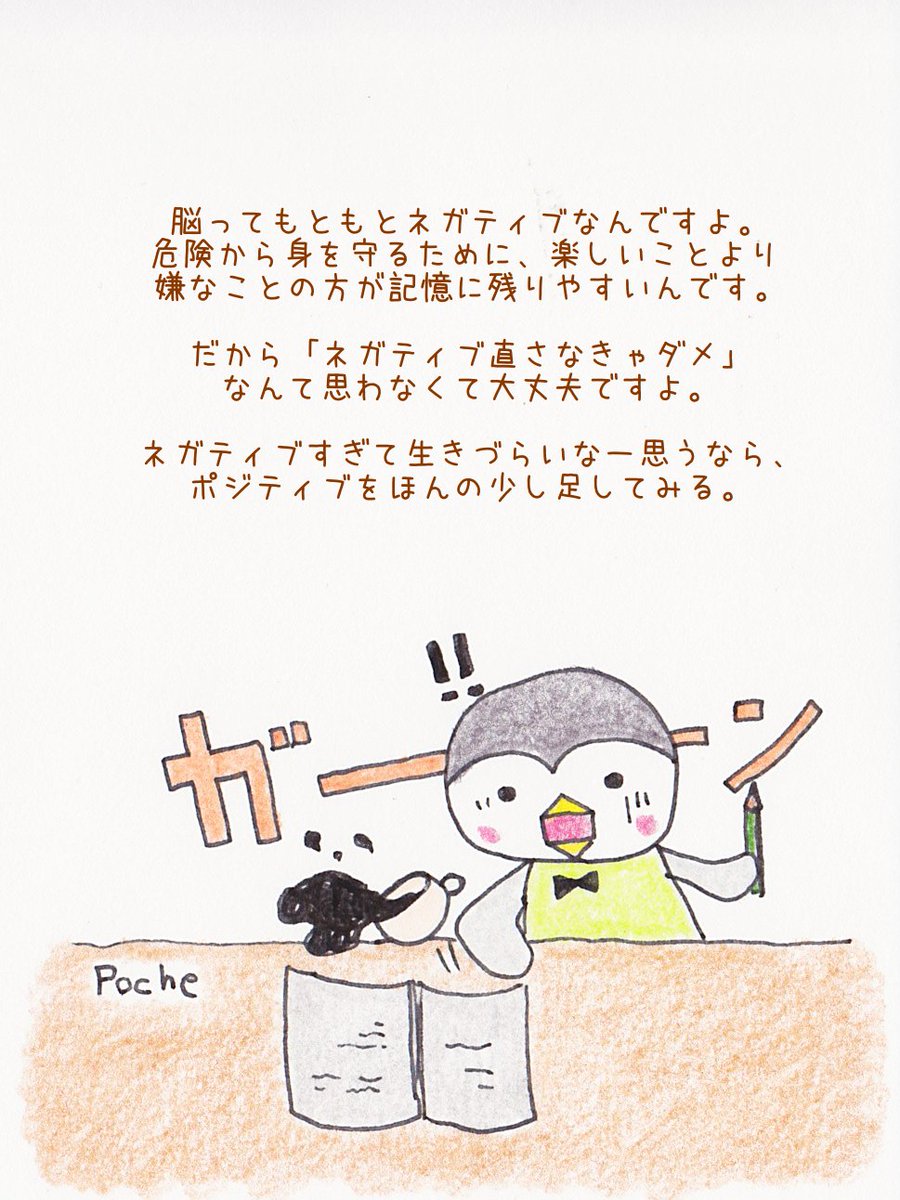 脳ってもともとネガティブなんですよ。
危険から身を守るために、楽しいことより
嫌なことの方が記憶に残りやすいんです。
だから「ネガティブ直さなきゃダメ」
なんて思わなくて大丈夫ですよ。
ネガティブすぎて生きづらいなー思うなら、
ポジティブをほんの少し足してみる。
!!
ガーン
Poche